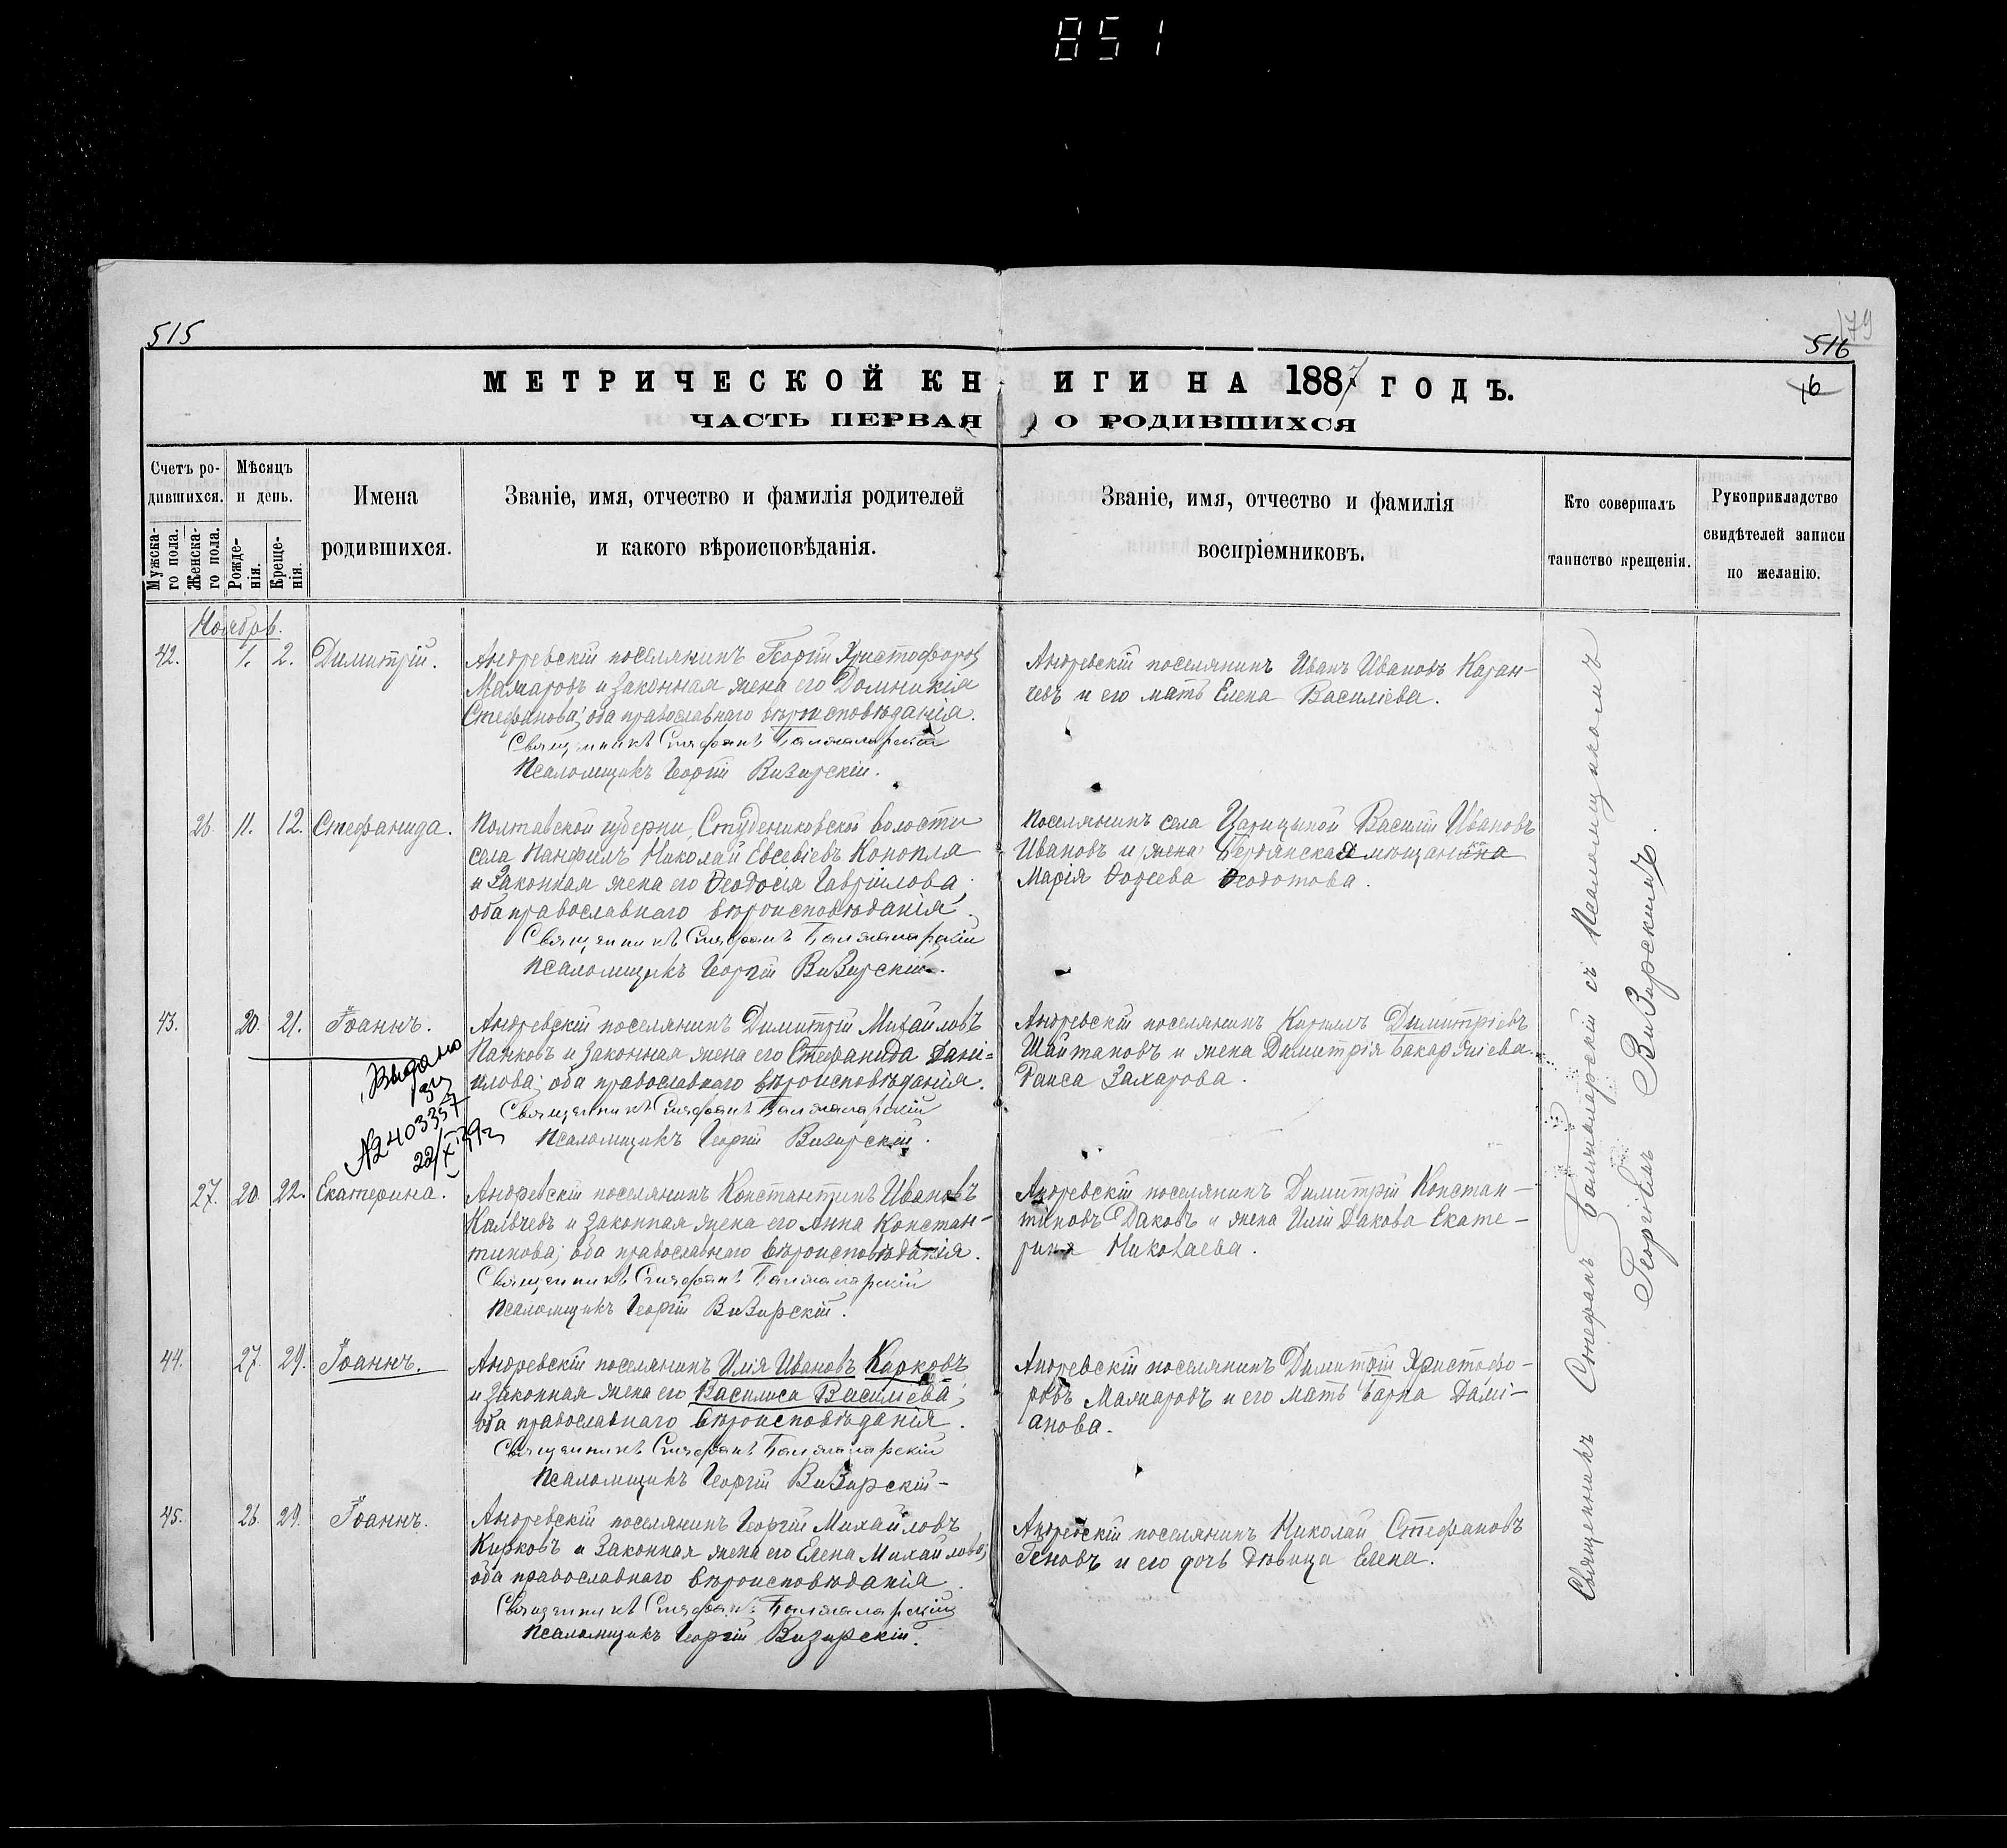 851
515
179
516
16
МЕТРИЧЕСКОЙ КНИГИ НА 1887 ГОДЪ.
ЧАСТЬ ПЕРВАЯ О РОДИВШИХСЯ
Счетъ родившихся.
Мужска-
го пола.
Женска-
го пола.
Мѣсяцъ
и день.
Рожде-
нія.
Креще-
нія.
Имена
родившихся.
Званіе, имя, отчество и фамилія родителей
и какого вѣроисповѣданія.
Званіе, имя, отчество и фамилія
воспріемниковъ.
Кто совершалъ
таинство крещенія.
Рукоприкладство
свидѣтелей записи
по желанію.
Ноябрь.
42. 1. 2. Димитрій.
Андревскій поселянинъ Георгій Христофоровъ
Мамаровъ и законная жена его Домникія
Стефанова; оба православнаго вѣроисповѣданія.
Священникъ Стефанъ
Псаломщикъ Георгій Визирскій.
Андревскій поселянинъ Иванъ Ивановъ Каран-
чевъ и его мать Елена Василіева.
26. 11. 12. Стефанида.
Полтавской губерни, Студениковской волости
села Панфилъ Николай Евсевіевъ Конопля
и законная жена его Ѳеодосія Гавріилова;
оба православнаго вѣроисповѣданія.
Священникъ Стефанъ
Псаломщикъ Георгій Визирскій.
Поселянинъ села Царицыной Василій Ивановъ
Ивановъ и жена Бердянская мѣщанина
Марія Ѳеодотова.
43. 20. 21. Іоаннъ.
Андревскій поселянинъ Димитрій Михайловъ
Панковъ и законная жена его Стефанида Дані-
илова; оба православнаго вѣроисповѣданія.
Священникъ Стефанъ
Псаломщикъ Георгій Визирскій.
Андревскій поселянинъ Кириллъ Димитріевъ
Шайтановъ и жена Димитрія
Раиса Захарова.
Выдано
№ 403357
22/X
27. 20. 22. Екатерина.
Андревскій поселянинъ Константинъ Ивановъ
Калвчевъ и законная жена его Анна Констан-
тинова; оба православнаго вѣроисповѣданія.
Священникъ Стефанъ
Псаломщикъ Георгій Визирскій.
Андревскій поселянинъ Димитрій Констан-
тиновъ Даковъ и жена Иліи Дакова Екате-
рина Николаева.
44. 27. 29. Іоаннъ.
Андревскій поселянинъ Илія Ивановъ Карковъ
и законная жена его Василиса Василіева;
оба православнаго вѣроисповѣданія.
Священникъ Стефанъ
Псаломщикъ Георгій Визирскій
Андревскій поселянинъ Димитрій Христофо-
ровъ Мамаровъ и его мать Варка Дамі-
анова.
45. 26. 29. Іоаннъ.
Андревскій поселянинъ Георгій Михайловъ
Кирковъ и законная жена его Елена Михайлова;
оба православнаго вѣроисповѣданія.
Священникъ Стефанъ
Псаломщикъ Георгій Визирскій.
Андревскій поселянинъ Николай Стефановъ
Геновъ и его дочь дѣвица Елена.
Священникъ Стефанъ съ Псаломщикомъ
Георгіемъ Визирскимъ.